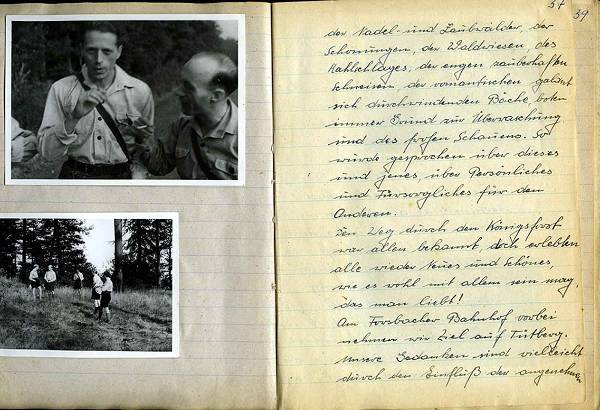 37 39
der Nadel- und Laubwälder, der
Schonungen, der Waldwiesen, des
Kahlschlages, der engen zauberhaften
Schneisen, der romantischen
sich durchwindenden Bäche, boten
immer Grund zur Überraschung
und des frohen Schauens. So
wurde gesprochen über dieses
und jenes, über Persönliches
und Fürsorgliches für den
Anderen.
Den Weg durch den Königsforst
war allen bekannt, doch erlebten
alle wieder Neues und Schönes,
wie es wohl mit allem sein mag,
das man liebt!
Am Forsbacher Bahnhof vorbei
nehmen wir Ziel auf Tütberg.
Unsere Gedanken sind vielleicht
durch den Einfluß der angenehmen